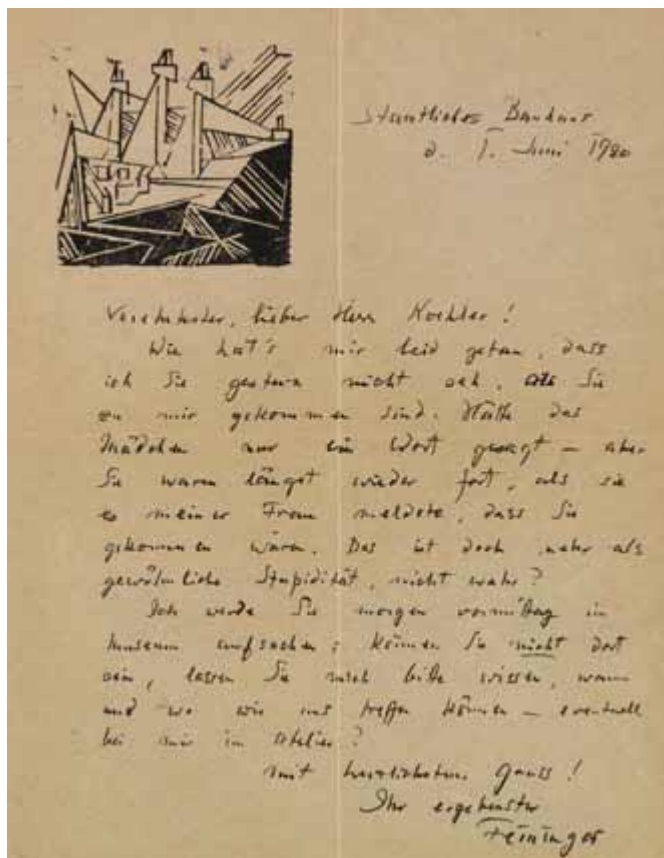 Staatliches Bauhaus
d. 1. Juni 1920
Verehrtester, lieber Herr Koehler!
Wie hat's mir leid getan, dass
ich Sie gestern nicht sah, als Sie
zu mir gekommen sind. Hätte das
Mädchen nur ein Wort gesagt – aber
Sie waren längst wieder fort, als sie
es meiner Frau meldete, dass Sie
gekommen wären. Das ist doch mehr als
gewöhnliche Stupidität, nicht wahr?
Ich werde Sie morgen vormittag im
Museum aufsuchen; können Sie nicht dort
sein, lassen Sie mich bitte wissen, wann
und wo wir uns treffen können – eventuell
bei mir im Atelier?
mit herzlichstem Gruss!
Ihr ergebenster
Feininger